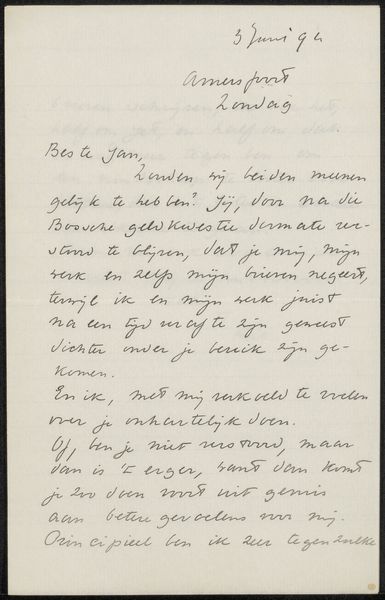 3 Juni 94
Amersfoort
Zondag
Beste Jan,
Zouden wij beiden meenen
gelijk te hebben? Jij, door na die
Bossche geldkwestie dermate ver-
stoord te blijven, dat je mij, mijn
werk en zelfs mijn brieven negeert,
terwijl ik en mijn werk juist
na een tijd veraf te zijn geweest
dichter onder je bereik zijn ge-
komen.
En ik, met mij verkoeld te voelen
over je onhartelijk doen.
Of, ben je niet verstoord, maar
dan is 't erger, want dan komt
je zoo doen voort uit gemis
aan betere gevoelens voor mij.
Principieel ben ik zeer tegen zulke